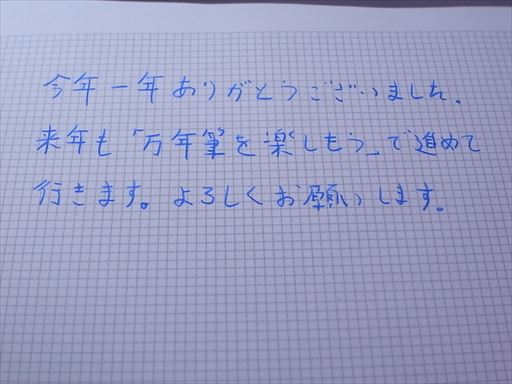 今年一年ありがとうございました。
来年も「万年筆を楽しもう」で進めて
行きます。よろしくお願いします。